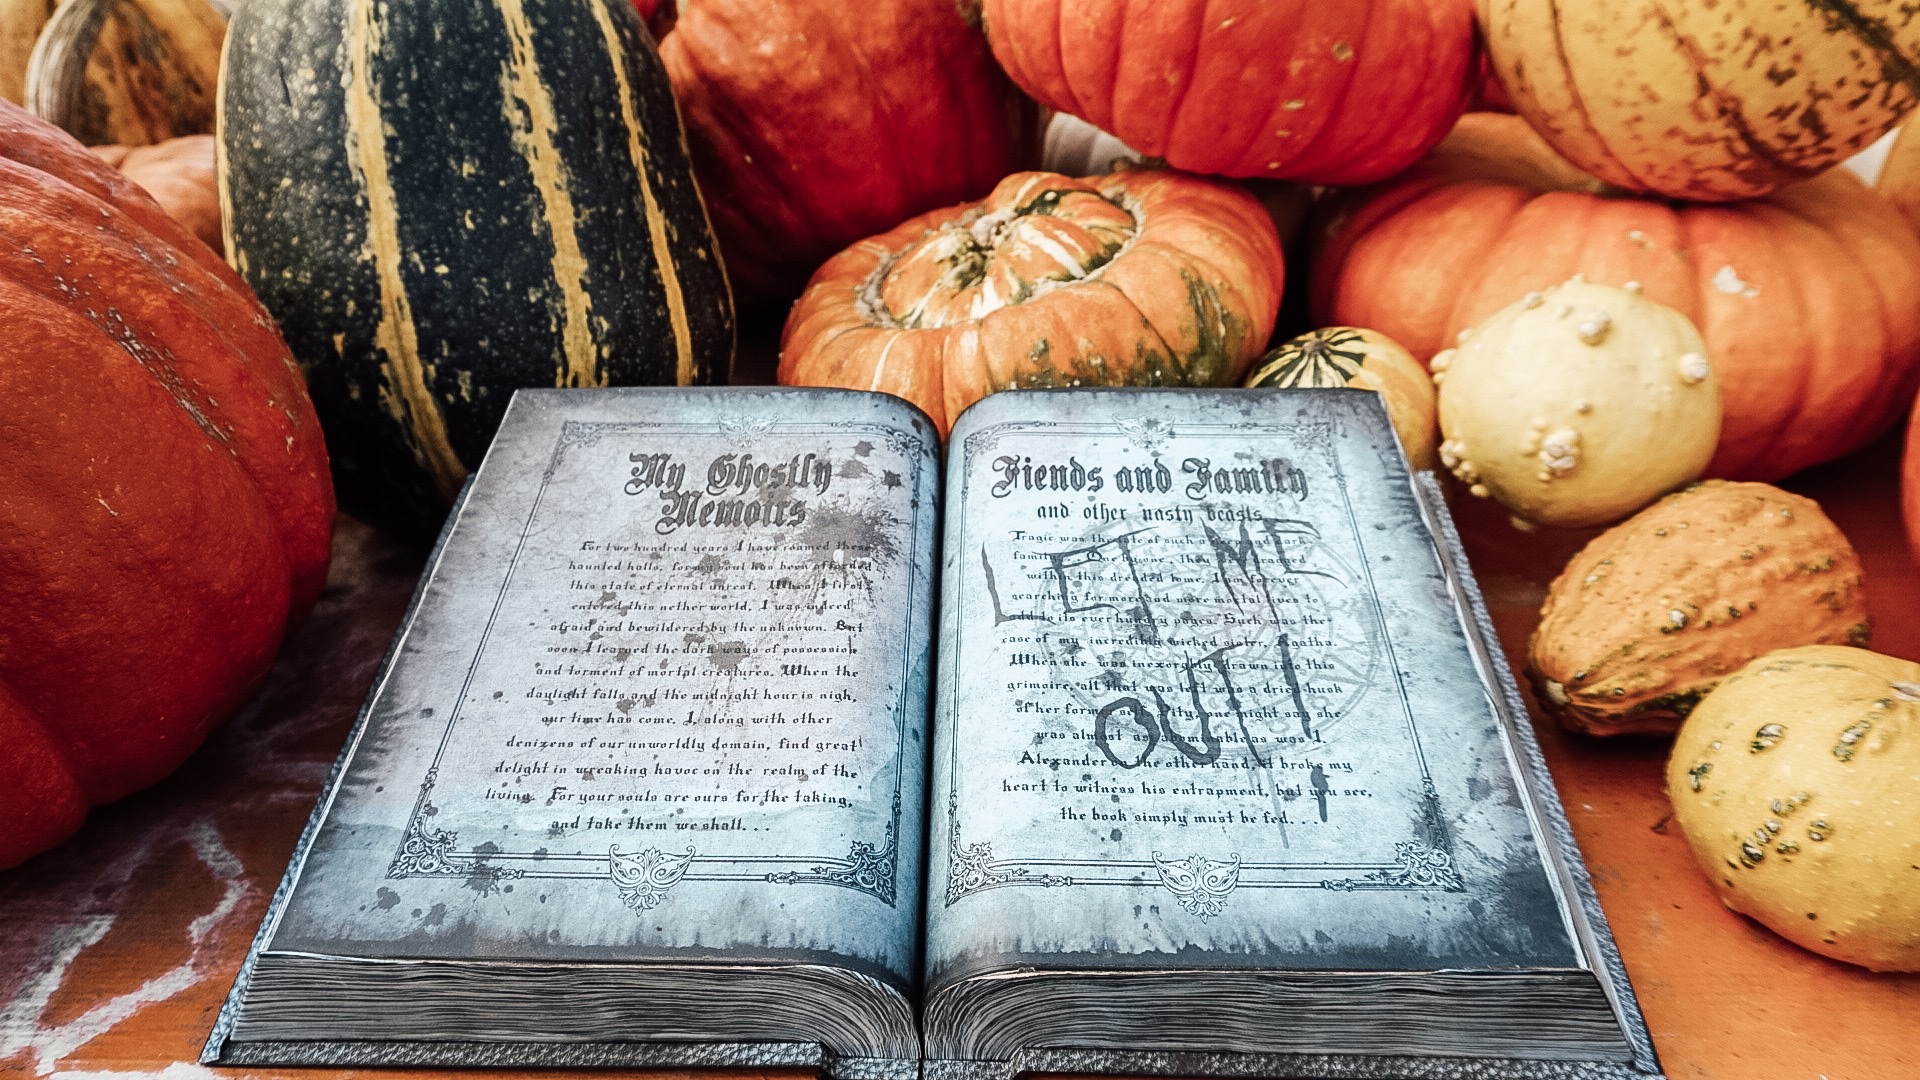 My Ghostly
Memoirs
For two hundred years I have roamed these
haunted halls, for my soul has been afforded
this state of eternal unrest. When I first
entered this nether world, I was indeed
afraid and bewildered by the unknown. But
soon I learned the dark ways of possession
and torment of mortal creatures. When the
daylight falls and the midnight hour is nigh,
our time has come. I, along with other
denizens of our unworldly domain, find great
delight in wreaking havoc on the realm of the
living. For your souls are ours for the taking,
and take them we shall. . .
Fiends and Family
and other nasty beasts
Tragic was the fate of such a deep and dark
family. One by one, they were dragged
within this dreaded tome. I am forever
searching for more and more mortal lives to
add to its ever hungry pages. Such was the
case of my incredibly wicked sister, Agatha.
When she was inexorably drawn into this
grimoire, all that was left was a dried husk
of her former self. Pity, one might say she
was almost as abominable as was I.
Alexander on the other hand, it broke my
heart to witness his entrapment, but you see,
the book simply must be fed. . .
LET ME
OUT!